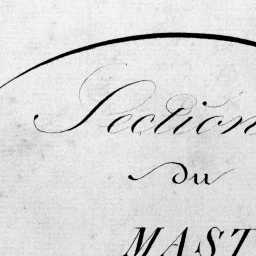 Section
du
MAST